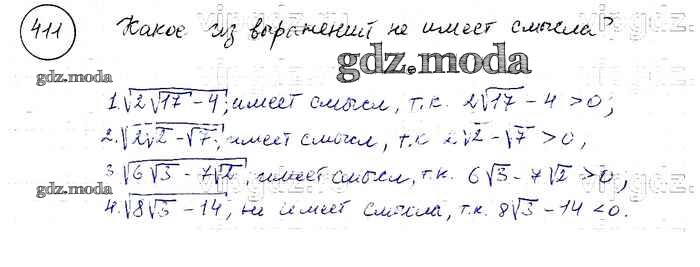 411 Какое из выражений не имеет смысла?
gdz.moda
gdz.moda
1. √(2√17 - 4); имеет смысл, т.к. 2√17 - 4 > 0;
2. √(2√2 - √7); имеет смысл, т.к 2√2 - √7 > 0,
3 √(6√3 - 7√2), имеет смысл, т.к. 6√3 - 7√2 > 0,
gdz.moda
4. √(8√3 - 14), не имеет смысла, т.к. 8√3 - 14 < 0.